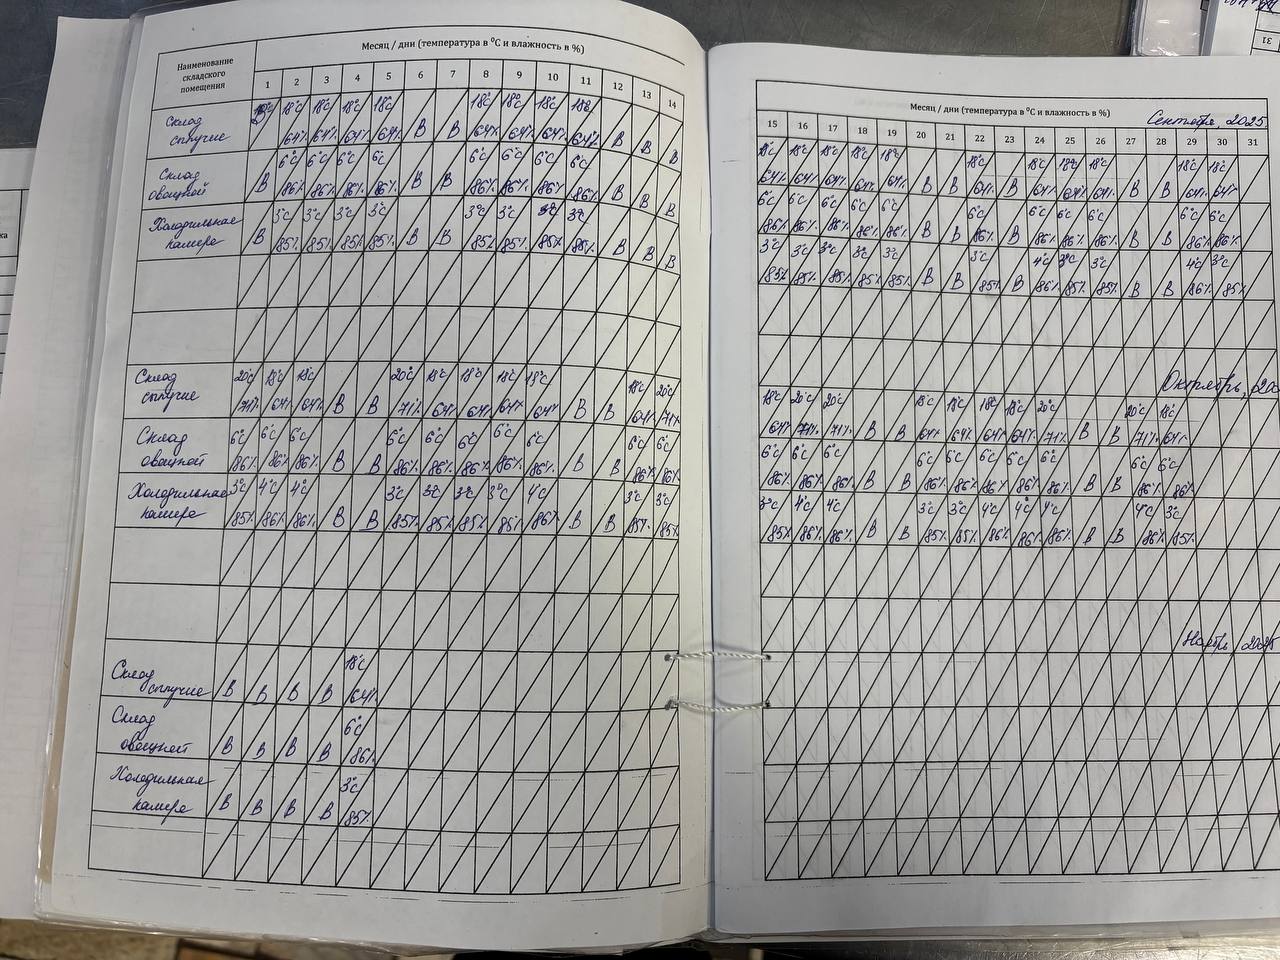 Месяц / дни (температура в °С и влажность в %)
Наименование складского помещения
1 2 3 4 5 6 7 8 9 10 11 12 13 14
Склад сыпучие
18°С 18°С 18°С 18°С 18°С 18°С 18°С 18°С
В 64% 64% 64% 64% В В 64% 64% 64% 64% В В В
Склад овощной
6°С 6°С 6°С 6°С 6°С 6°С 6°С 6°С
В 86% 86% 86% 86% В В 86% 86% 86% 86% В В В
Холодильная камера
3°С 3°С 3°С 3°С 3°С 3°С 3°С 3°С
В 85% 85% 85% 85% В В 85% 85% 85% 85% В В В
Склад сыпучие
20°С 18°С 18°С 20°С 18°С 18°С 18°С 18°С 18°С 20°С
71% 64% 64% В В 71% 64% 64% 64% 64% В В 64% 71%
Склад овощной
6°С 6°С 6°С 6°С 6°С 6°С 6°С 6°С 6°С 6°С
86% 86% 86% В В 86% 86% 86% 86% 86% В В 86% 86%
Холодильная камера
3°С 4°С 4°С 3°С 3°С 3°С 3°С 4°С 3°С 3°С
85% 86% 86% В В 85% 85% 85% 85% 86% В В 85% 85%
Склад сыпучие
18°С
В В В В 64%
Склад овощной
6°С
В В В В 86%
Холодильная камера
3°С
В В В В 85%
Месяц / дни (температура в °С и влажность в %) Сентябрь, 2025
15 16 17 18 19 20 21 22 23 24 25 26 27 28 29 30 31
18°С 18°С 18°С 18°С 18°С 18°С 18°С 18°С 18°С 18°С 18°С
64% 64% 64% 64% 64% В В 64% В 64% 64% 64% В В 64% 64%
6°С 6°С 6°С 6°С 6°С 6°С 6°С 6°С 6°С 6°С 6°С
86% 86% 86% 86% 86% В В 86% В 86% 86% 86% В В 86% 86%
3°С 3°С 3°С 3°С 3°С 3°С 4°С 3°С 3°С 4°С 3°С
85% 85% 85% 85% 85% В В 85% В 86% 85% 85% В В 86% 85%
Октябрь, 20
18°С 20°С 20°С 18°С 18°С 18°С 18°С 20°С 20°С 18°С
64% 71% 71% В В 64% 64% 64% 64% 71% В В 71% 64%
6°С 6°С 6°С 6°С 6°С 6°С 6°С 6°С 6°С 6°С
86% 86% 86% В В 86% 86% 86% 86% 86% В В 86% 86%
3°С 4°С 4°С 3°С 3°С 4°С 4°С 4°С 4°С 3°С
85% 86% 86% В В 85% 85% 86% 86% 86% В В 86% 85%
Ноябрь, 2025
31